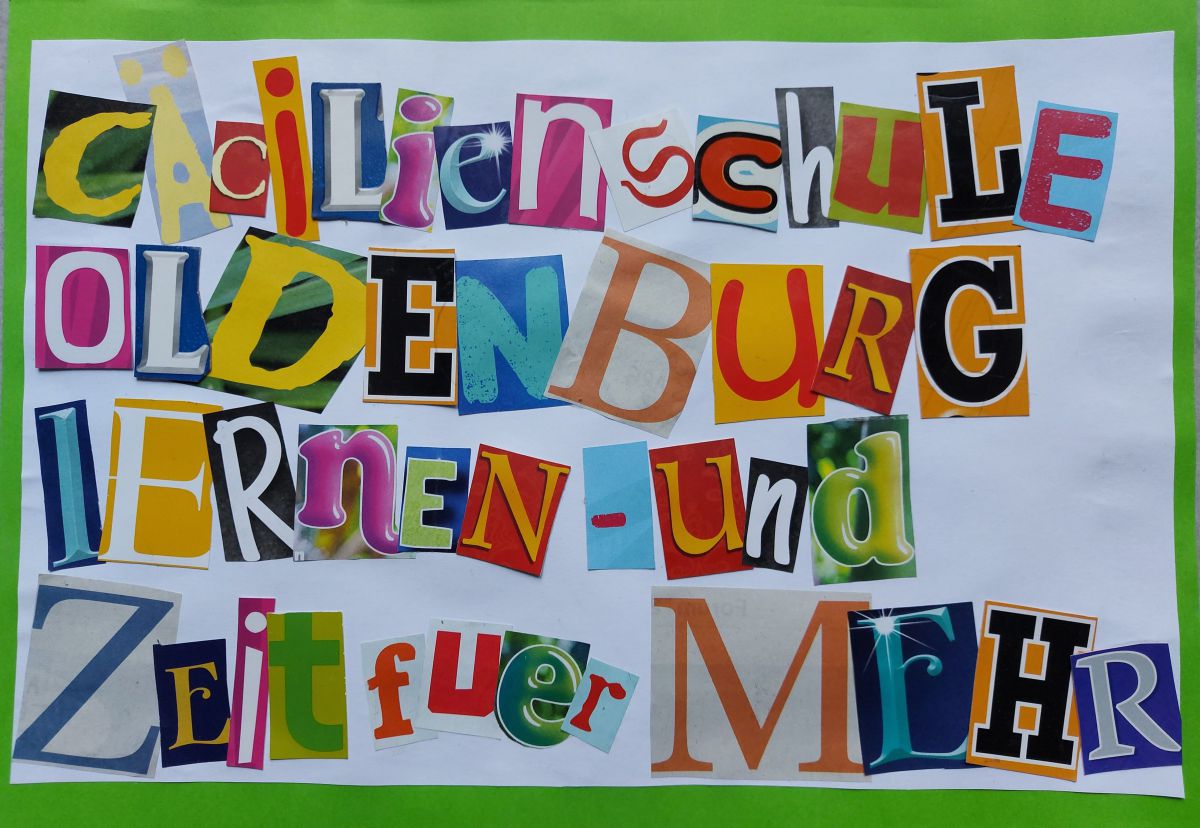 cÄciLienschuLE
OLDENBURG
lERnEN-und
ZEit fuer MEHR